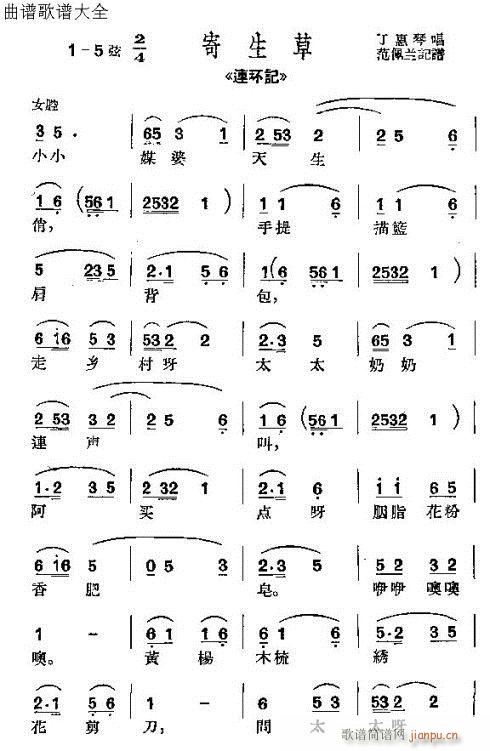 曲谱歌谱大全
1-5弦 2/4 寄生草 丁惠琴唱
《連环記》 范佩兰記譜
女腔
3 5. 65 3 1 2 53 2 2 5 6
小小 媒婆 天 生
1 6 (561 2532 1) 1 1 6 1 1 6
俏, 手提 描籃
5 235 2·1 5 6 1(6 561 2532 1)
肩 背 包,
6 i6 5 3 5 532 2 2·3 5 5 65 3 1
走 乡 村呀 太 太 奶奶
2 53 3 2 2 5 6 1 6 (561 2532 1)
連 声 叫,
1·2 3 5 2 32 1 2·1 6 i i 6 5
阿 买 点 呀 胭脂 花粉
6 i6 5 0 5 3 2·3 5 5 2 3 2
香 肥 皂。 咿咿 噢噢
1 - 6 1 6 1 6 1 6 5·2 3 5
噢。 黃 楊 木梳 綉
2 3 2 1 6 - 2·3 5 532 2
花 剪 刀, 問 太 太呀
歌谱简谱网
jianpu.cn